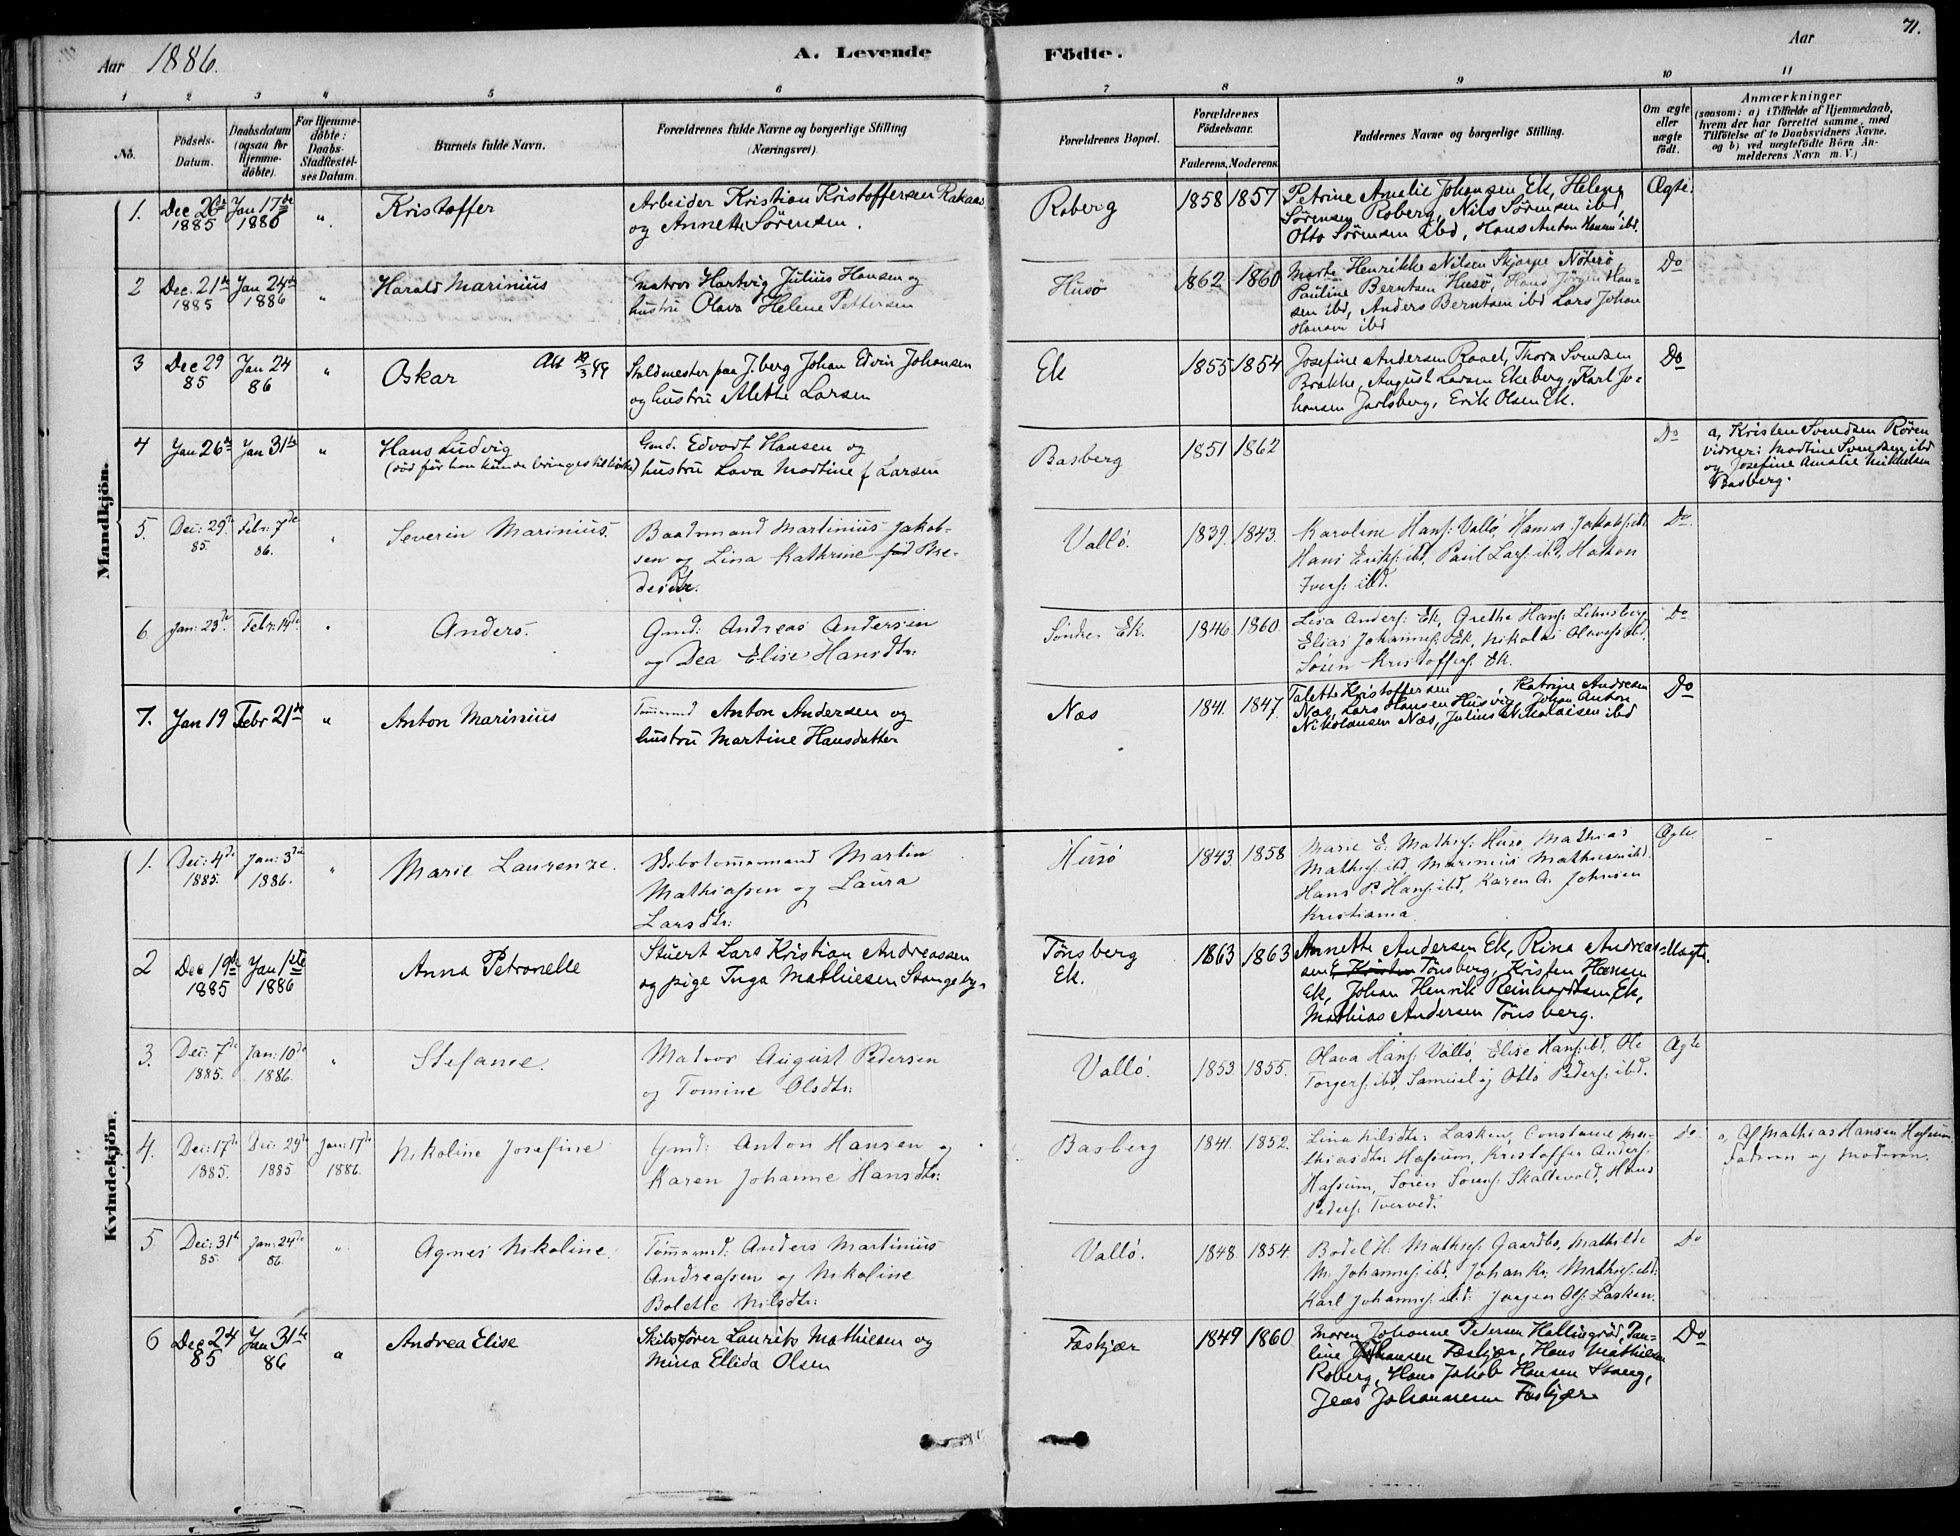 71.
Aar 1886.
A. Levende Födte.
Aar
1 2 3 4 5 6 7 8 9 10 11
No.
Födsels-Datum.
Daabsdatum (ogsaa for Hjemmedöbte).
For Hjemmedöbte: Daabs-Stadfæstelses Datum.
Barnets fulde Navn.
Forældrenes fulde Navne og borgerlige Stilling (Næringsvei).
Forældrenes Bopæl.
Forældrenes Födselsaar.
Faderens. Moderens.
Faddernes Navne og borgerlige Stilling.
Om ægte eller uægte födt.
Anmærkninger
(saasom: a) i Tilfælde af Hjemmedaab, hvem der har forrettet samme, med Tilföielse af to Daabsvidners Navne, og b) ved uægtefödte Börn Anmelderens Navn m. V.)
Mandkjön.
1. Dec 26de 1885 Jan 17de 1886 " Kristoffer
Arbeider Kristian Kristoffersen
og Annette Sörensen.
Roberg 1858 1857
Petrine Amalie Johansen Ek, Helene
Sörensen Roberg, Nils Sörensen ibd,
Otto Sörensen ibd, Hans Anton Hansen ibd.
Ægte.
2 Dec. 21de 1885 Jan 24de 1886 " Harald Marinius
Matros Hartvig Julius Hansen og
hustru Olava Helene Pettersen
Husö 1862 1860
Marte Henrikke Nilsen Skjærpe Nöterö
Pauline Berntsen Husö, Hans Jörgen Han=
sen ibd, Anders Berntsen ibd Lars Johan
Hansen ibd
Do
3 Dec 29 85 Jan 24 86 " Oskar
Staldmester paa J.berg Johan Edvin Johansen
og hustru Alethe Larsen
Ek 1855 1854
Josefine Andersen Raael, Thora Svendsen
Brække, August Larsen Ekeberg, Karl Jo=
hansen Jarlsberg, Erik Olsen Ek.
Do
4 Jan 26de Jan 31te " Hans Ludvig
(död för han kunde bringes til kirke)
Gmd. Edvardt Hansen og
hustru Lava Martine f Larsen
Basberg 1851 1862
Do
a, Kristen Svendsen Rören
vidner: Martine Svendsen ibd
og Josefine Amalie Mikkelsen
Basberg.
5. Dec: 29de 85. Febr: 7de 86. " Severin Marinius.
Baadsmand Martinius Jakob-
sen og Lina Kathrine föd Pre-
Vallö. 1839. 1843.
Karoline Hans: Vallö, Hans Jakobs: ibd.
Hans Eriks: ibd, Paul Lars: ibd, Hakon
Ivers: ibd.
Do
6. Jan: 23de Febr: 14de " Anders.
Gmd: Andreas Andersen
og Dea Elise Hansdtr:
Söndre Ek. 1846. 1860.
Lisa Anders: Ek, Grethe Hans:
Elias Johannes: Ek, Nikolai Olaves: ibd,
Sören Kristoffers: Ek.
Do
7. Jan 19 Febr 21de " Anton Marinius
Tömmermd Anton Andersen og
hustru Martine Hansdatter
Næs 1841. 1847.
Talette Kristoffersen, Katrine Andresen
Næs, Lars Hansen Husvig, Johan Anton
Nikolaisen Næs, Julius Nikolaisen ibd
Do
Kvindekjön.
1. Dec: 4de 1885. Jan: 3die 1886. " Marie Laurenze.
Skibstömmermand Martin
Mathiassen og Laura
Larsdtr:
Husö 1843. 1858
Marie E. Mathis: Husö, Mathias
Mathis: ibd, Marinius Mathiesen ibd,
Hans P. Hans: ibd, Karen A. Johnsen
Kristiania.
Ægte
2 Dec 19de 1885 Jan 1ste 1886 Anna Petronelle
Stuert Lars Kristian Andreassen
og pige Inga Mathiesen Stangeby.
Tönsberg
Ek. 1863 1863
Annette Andersen Ek, Rina Andreas=
sen Tönsberg, Kristen Hansen
Ek, Johan Henrik Reinhardtsen Ek,
Mathias Andersen Tönsberg.
Uægte.
3. Dec: 7de 1885. Jan: 10de 1886. " Stefanie.
Matros August Pedersen
og Tomine Olsdtr:
Vallö. 1853 1855.
Olava Hans: Vallö, Elise Hans: ibd, Ole
Torgers: ibd, Samuel og Otto Peders: ibd.
Ægte
4. Dec: 17de 1885. Dec: 29de 1885 Jan: 17de 1886. Nikoline Josefine
Gmd: Anton Hansen og
Karen Johanne Hansdtr:
Basberg 1841. 1852.
Lina Nilsdtr: Lasken, Constance Ma-
thiasdtr: Hassum, Kristoffer Anders:
Hassum, Sören Sörens: Skaltevold, Hans
Peders: Tverved.
do.
a, Af Mathias Hansen Hassum.
Faderen og Moderen.
5 Dec: 31te 85. Jan: 24de 86. " Agnes Nikoline.
Tömmermd: Anders Martinius
Andreassen og Nikoline
Bolette Nilsdtr:
Vallö. 1848. 1854.
Bodel H. Mathis: Gaardbo, Mathilde
M. Johannes: ibd, Johan Kr. Mathis: ibd:
Karl Johannes: ibd: Jörgen Ols: Lasken.
Do
6 Dec 24 85 Jan 31te 86 " Andrea Elise
Skibsförer Laurits Mathiesen og
Mina Ellida Olsen
Fæskjær 1849 1860
Maren Johanne Petersen Hallingröd, Pau-
line Johansen Fæskjær, Hans Mathiesen
Roberg, Hans Jakob Hansen Stang,
Jens Johannesen Fæskjær
Do